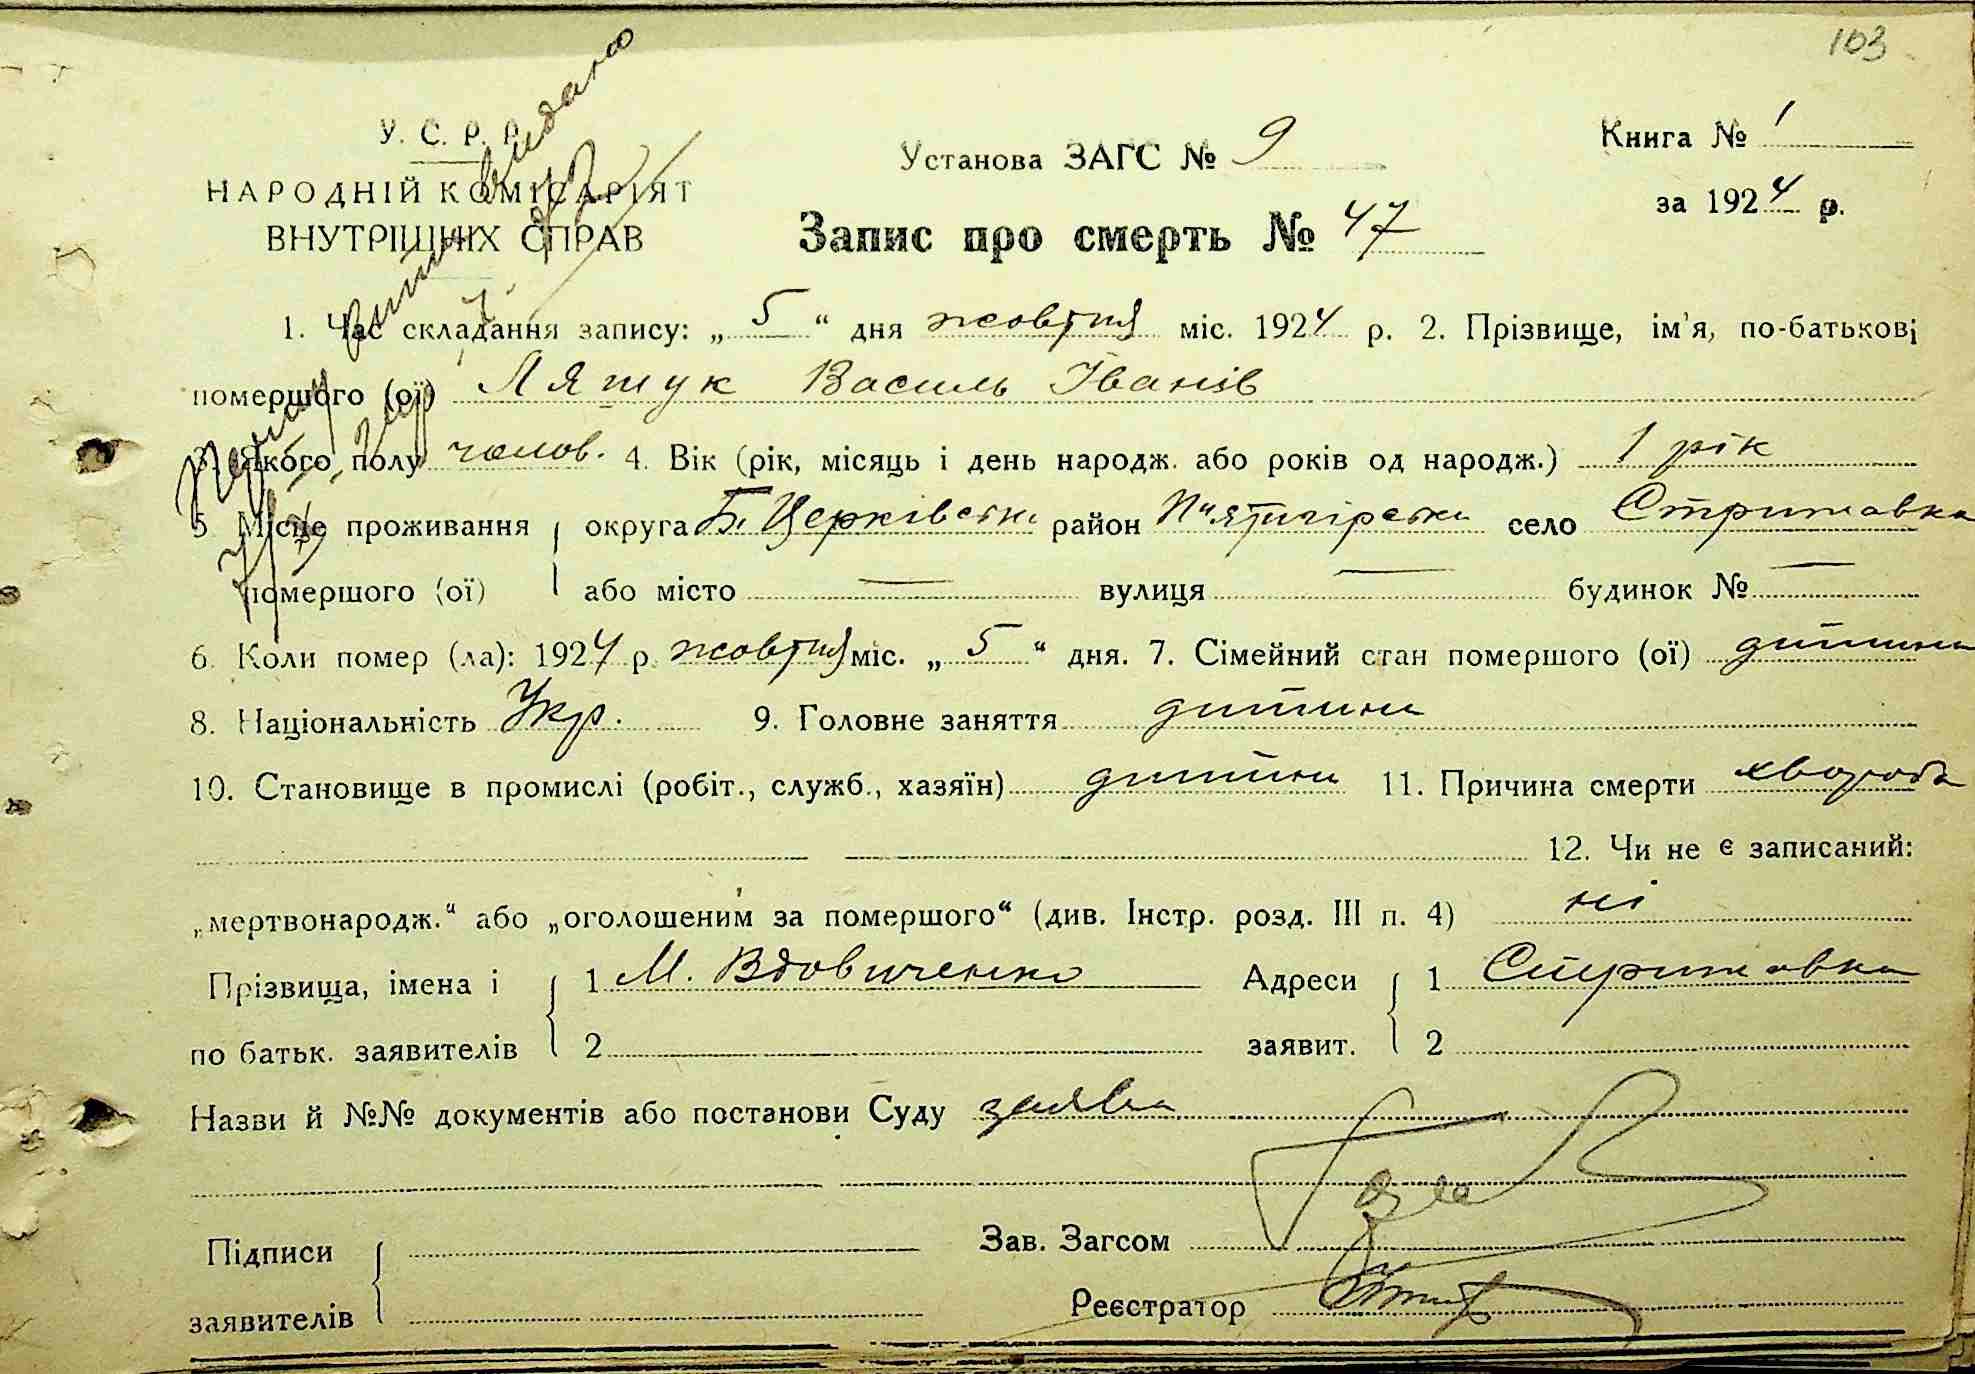 103
У. С. Р. Р.
НАРОДНІЙ КОМІСАРІЯТ
ВНУТРІШНІХ СПРАВ
Установа ЗАГС № 9
Книга № 1
за 1924 р.
Запис про смерть № 47
видано
1. Час складання запису: „ 5 “ дня жовтня міс. 1924 р. 2. Прізвище, ім'я, по-батькові
помершого (ої) Ляшук Василь Іванів
3. Якого полу чолов. 4. Вік (рік, місяць і день народж. або років од народж.) 1 рік
5 Місце проживання округа Б. Церківськ. район П'ятигірськи село Стрижавка
помершого (ої) або місто — вулиця — будинок № —
6. Коли помер (ла): 1924 р. жовтня міс. „ 5 “ дня. 7. Сімейний стан помершого (ої) дитина
8. Національність Укр. 9. Головне заняття дитина
10. Становище в промислі (робіт., служб., хазяїн) дитина 11. Причина смерти хвороба
12. Чи не є записаний:
„мертвонародж.“ або „оголошеним за помершого“ (див. Інстр. розд. III п. 4) ні
Прізвища, імена і 1 М. Вдовиченко Адреси 1 Стрижавка
по батьк. заявителів 2 заявит. 2
Назви й №№ документів або постанови Суду заява
Підписи Зав. Загсом
заявителів Реєстратор